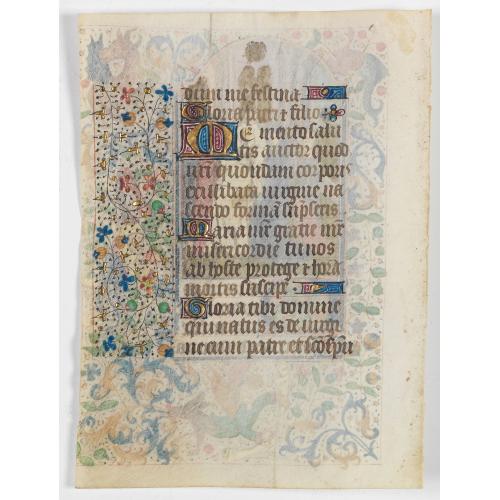 dium me festina
Gloria patri et filio
Memento salu
tis auctor quod
nr̃i quondam corporis
ex illibata virgine na
scendo formã sũpseris
Maria mr̃ gratie mr̃
misericordie tu nos
ab hoste protege et hora
mortis suscipe
Gloria tibi domine
qui natus es de virgi
ne cum patre et sc̃o sp̃u